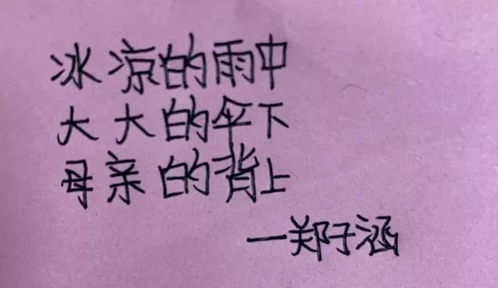 冰凉的雨中
大大的伞下
母亲的背上
—郑子涵